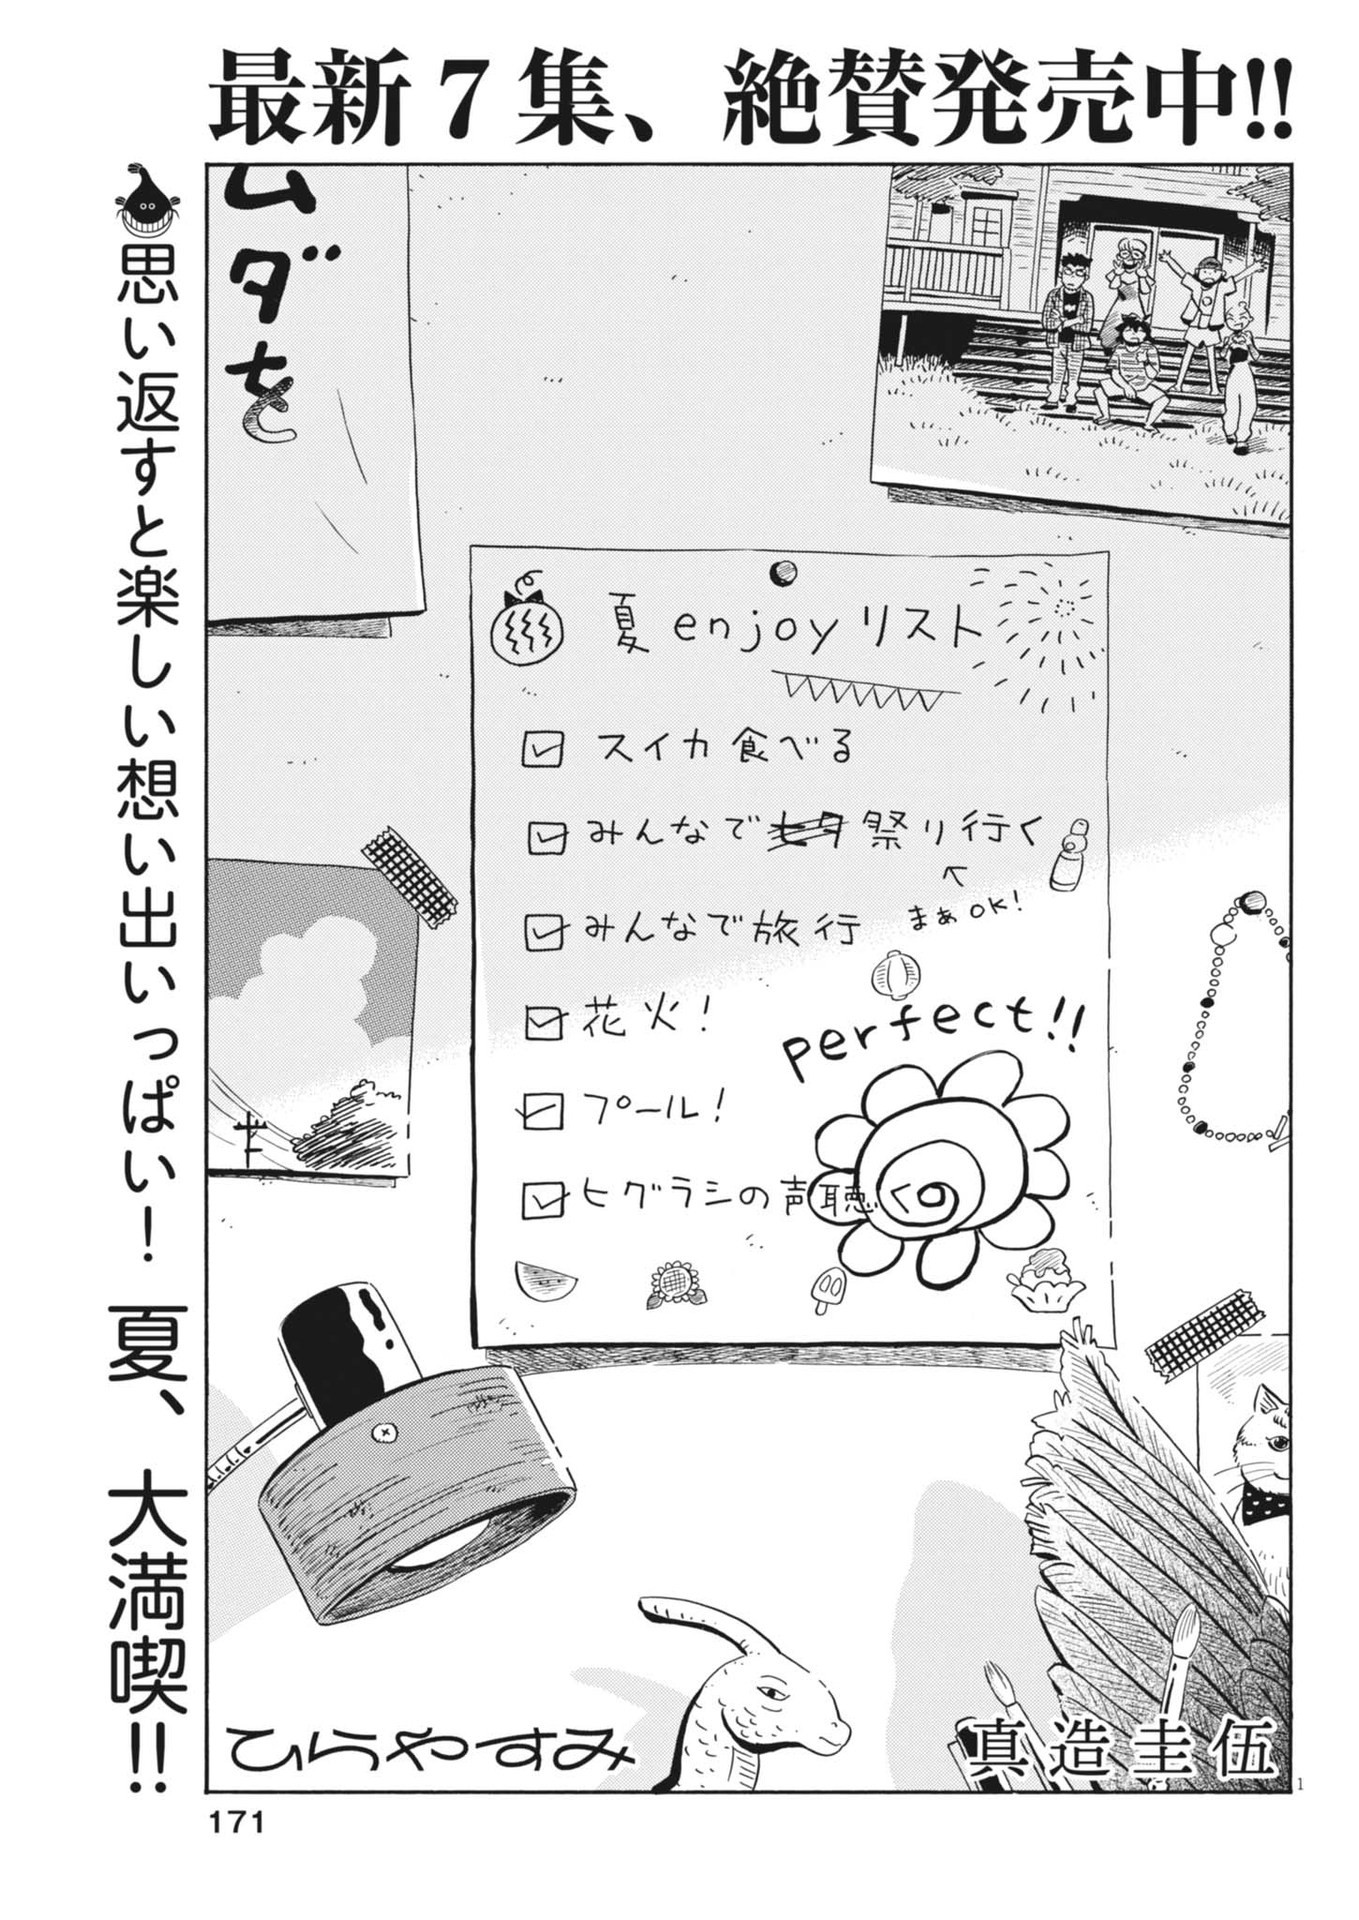 最新7集、絶賛発売中!!
思い返すと楽しい想い出いっぱい！夏、大満喫!!
ムダを
夏enjoyリスト
スイカ食べる
みんなで七夕祭り行く
まぁOK!
みんなで旅行
花火!
perfect!!
プール!
ヒグラシの声聴く
ひらやすみ
真造圭伍
1
171